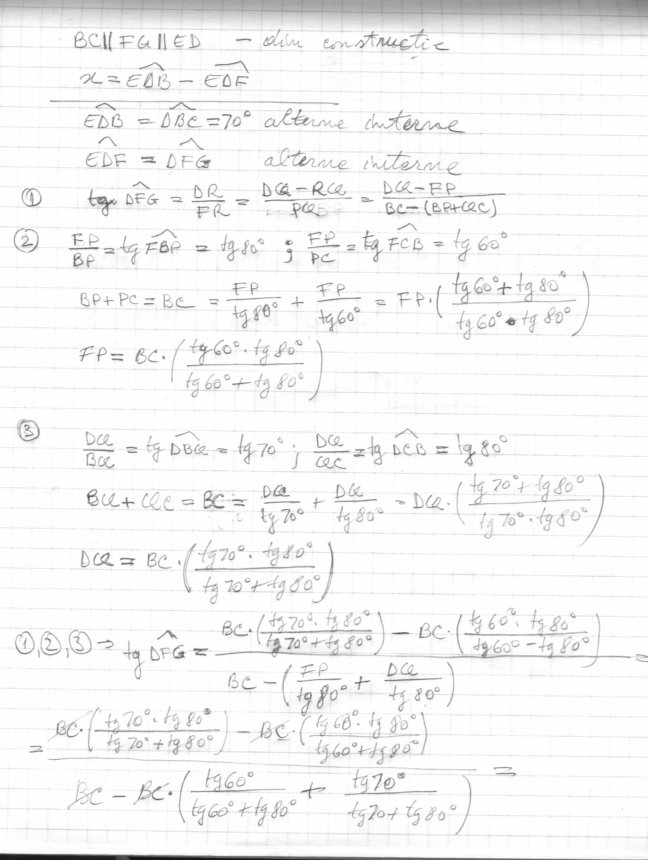 BC∥FG∥ED — din construcție
x = EDB^ − EDF^
EDB^ = DBC^ = 70° alterne interne
EDF^ = DFG^ alterne interne
① tg DFG^ = DR/FR = (DQ−RQ)/PQ = (DQ−FP)/(BC−(BP+QC))
② FP/BP = tg FBP^ = tg 80° ; FP/PC = tg FCB^ = tg 60°
BP+PC = BC = FP/tg80° + FP/tg60° = FP·((tg60°+tg80°)/(tg60°·tg80°))
FP = BC·((tg60°·tg80°)/(tg60°+tg80°))
③ DQ/BQ = tg DBQ^ = tg70° ; DQ/QC = tg DCB^ = tg80°
BQ+QC = BC = DQ/tg70° + DQ/tg80° = DQ·((tg70°+tg80°)/(tg70°·tg80°))
DQ = BC·((tg70°·tg80°)/(tg70°+tg80°))
①,②,③ → tg DFG^ = (BC·((tg70°·tg80°)/(tg70°+tg80°)) − BC·((tg60°·tg80°)/(tg60°−tg80°)))/(BC−(FP/tg80° + DQ/tg80°)) =
= (BC·((tg70°·tg80°)/(tg70°+tg80°)) − BC·((tg60°·tg80°)/(tg60°+tg80°)))/(BC − BC·(tg60°/(tg60°+tg80°) + tg70°/(tg70+tg80°))) =